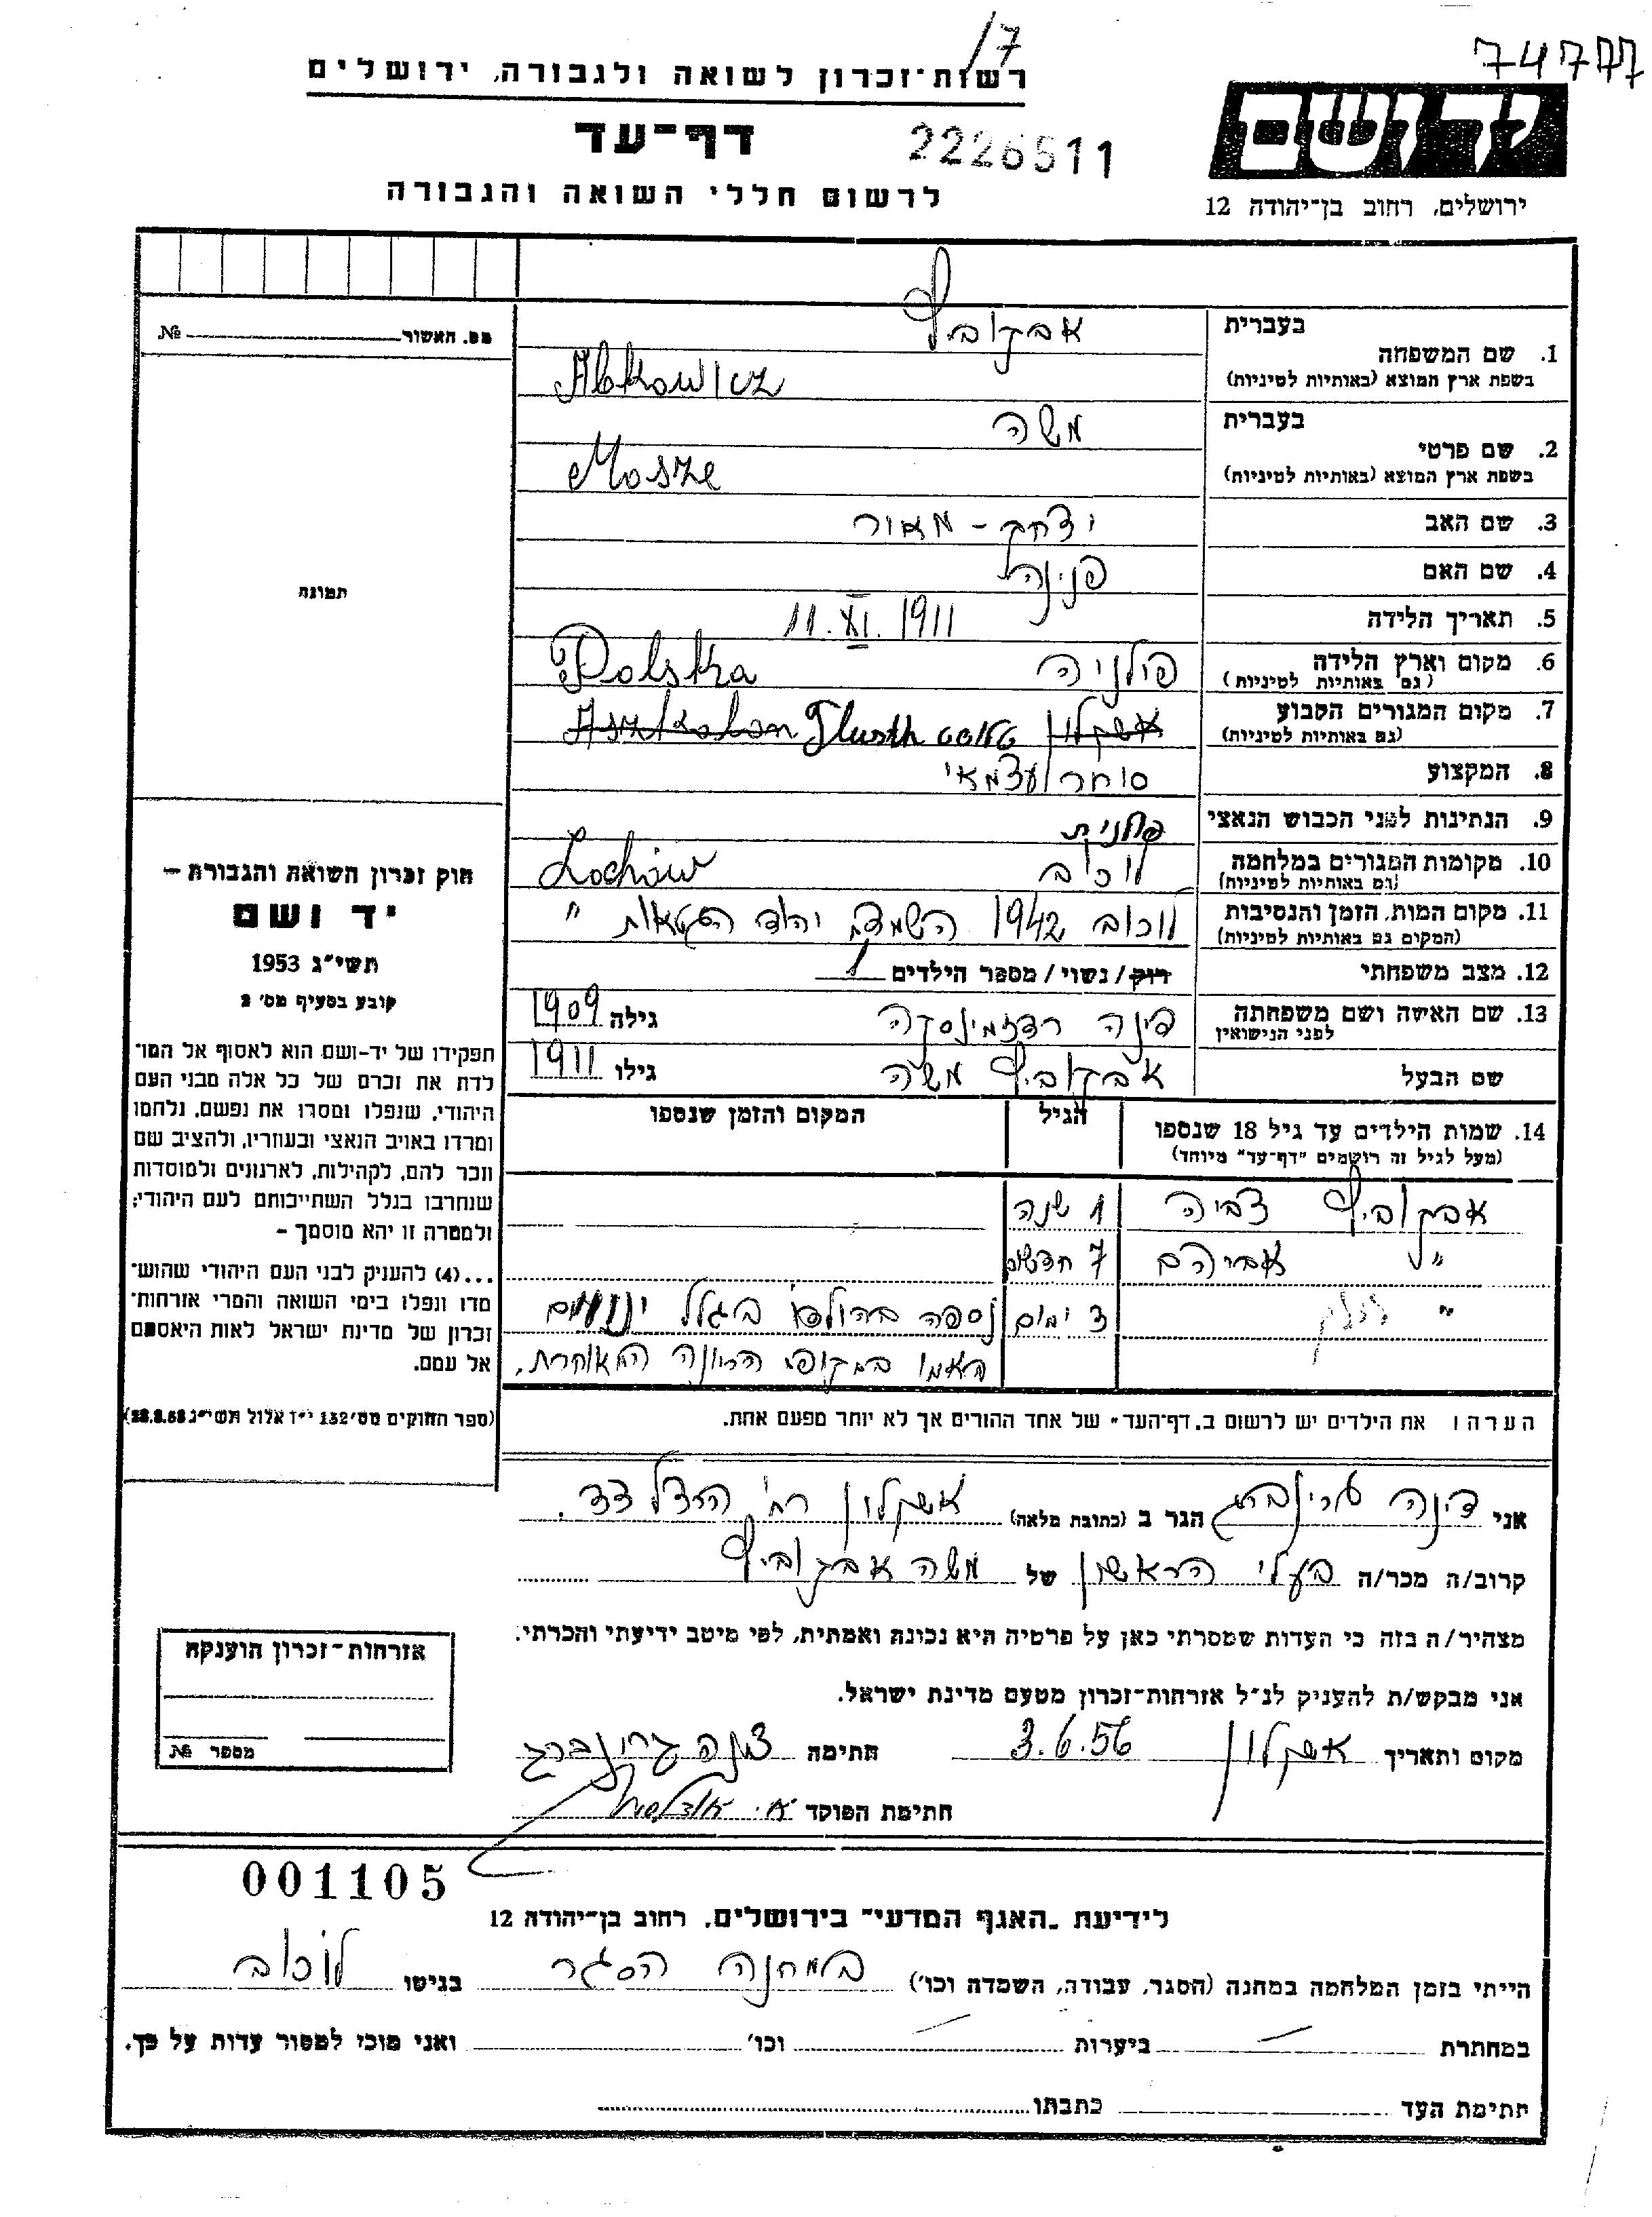 /7
74777
רשות־זכרון לשואה ולגבורה, ירושלים
יד ושם
דף־עד
2226511
ירושלים, רחוב בן־יהודה 12
לרשום חללי השואה והגבורה
מס. האשור № 
תמונה
1. שם המשפחה בעברית אבקוביץ
בשפת ארץ המוצא (באותיות לטיניות) Abkowicz
2. שם פרטי בעברית משה
בשפת ארץ המוצא (באותיות לטיניות) Mosze
3. שם האב יצחק - מאור
4. שם האם פנינה
5. תאריך הלידה 11.XI.1911
6. מקום וארץ הלידה (גם באותיות לטיניות) פולניה Polska
7. מקום המגורים הקבוע (גם באותיות לטיניות) אשקלון Aszkalon
8. המקצוע סוחר עצמאי
9. הנתינות לפני הכבוש הנאצי פולנית
10. מקומות המגורים במלחמה (גם באותיות לטיניות) לוכוב Lochów
11. מקום המות, הזמן והנסיבות (המקום גם באותיות לטיניות) לוכוב 1942 השמדת יהודי
12. מצב משפחתי רוק/נשוי/מספר הילדים
13. שם האשה ושם משפחתה לפני הנישואין דינה רדזמינסקה גילה 1909
שם הבעל אבקוביץ משה גילו 1911
14. שמות הילדים עד גיל 18 שנספו (מעל לגיל זה רושמים "דף־עד" מיוחד) הגיל המקום והזמן שנספו
אבקוביץ צביה 1 שנה
" אברהם 7 חדשים
" 3 ימים נספה בהולדו בגלל
האמו במקופי הריונה המאוחרת.
חוק זכרון השואה והגבורה –
יד ושם
תשי"ג 1953
קובע בסעיף מס׳ 2
תפקידו של יד-ושם הוא לאסוף אל המו־
לדת את זכרם של כל אלה מבני העם
היהודי, שנפלו ומסרו את נפשם, נלחמו
ומרדו באויב הנאצי ובעוזריו, ולהציב שם
וזכר להם, לקהילות, לארגונים ולמוסדות
שנחרבו בגלל השתייכותם לעם היהודי;
ולמטרה זו יהא מוסמך –
...(4) להעניק לבני העם היהודי שהוש־
מדו ונפלו בימי השואה והמרי אזרחות־
זכרון של מדינת ישראל לאות היאספם
אל עמם.
(ספר החוקים מס׳ 132 י"ז אלול תשי"ג 28.8.53)
הערה: את הילדים יש לרשום ב„דף־העד" של אחד ההורים אך לא יותר מפעם אחת.
אני דינה גרינברג הגר ב (כתובת מלאה) אשקלון רח׳ הרצל
קרוב/ה מכר/ה בעלי הראשון של משה אבקוביץ
מצהיר/ה בזה כי העדות שמסרתי כאן על פרטיה היא נכונה ואמתית, לפי מיטב ידיעתי והכרתי.
אני מבקש/ת להעניק לנ"ל אזרחות־זכרון מטעם מדינת ישראל.
מקום ותאריך אשקלון 3.6.56 חתימה דינה גרינברג
חתימת הפוקד
אזרחות־זכרון הוענקה
מספר №
001105
לידיעת „האגף המדעי" בירושלים, רחוב בן־יהודה 12
הייתי בזמן המלחמה במחנה (הסגר, עבודה, השמדה וכו׳) במחנה הסגר בגיטו לוכוב
במחתרת ביערות וכו׳ ואני מוכן למסור עדות על כך.
חתימת העד כתבתו